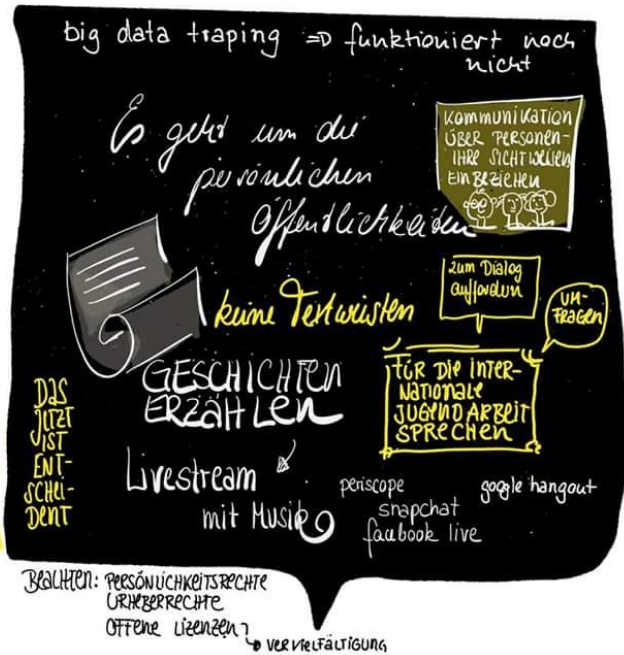 big data traping => funktioniert noch
nicht
Es geht um die
persönlichen
Öffentlichkeiten
KOMMUNIKATION
ÜBER PERSONEN-
IHRE SICHTWEISEN
EINBEZIEHEN
keine Textwüsten
zum Dialog
auffordern
UM-
FRAGEN
GESCHICHTEN
ERZÄHLEN
FÜR DIE INTER-
NATIONALE
JUGENDARBEIT
SPRECHEN
DAS
JETZT
IST
ENT-
SCHEI-
DENT
Livestream
mit Musik
periscope
google hangout
snapchat
facebook live
BEACHTEN: PERSÖNLICHKEITSRECHTE
URHEBERRECHTE
OFFENE LIZENZEN
VERVIELFÄLTIGUNG